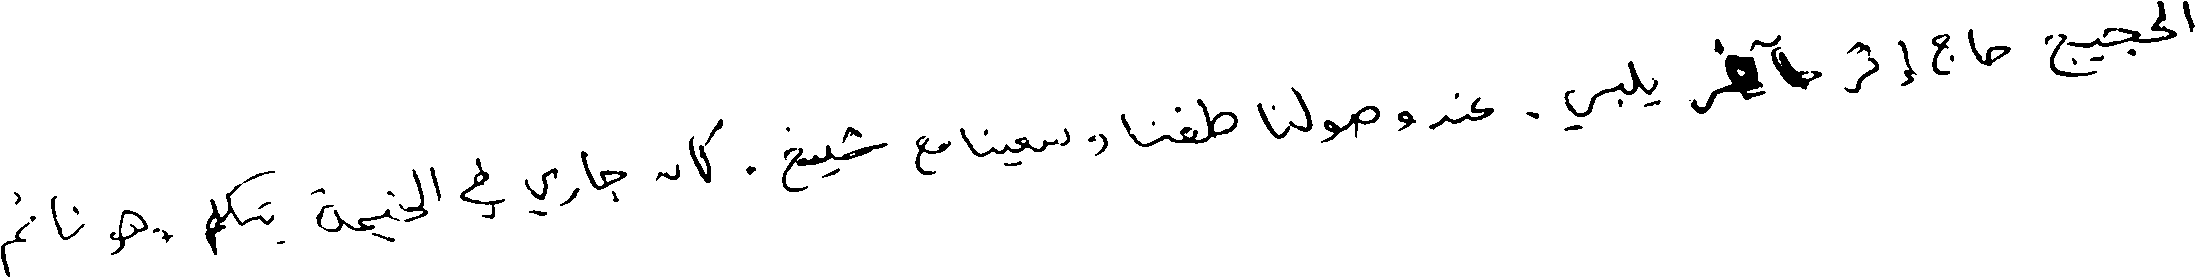 الحجيج حاج إثر آخر يلبي. عند وصولنا طفنا وسعينا مع شيخ. كان جاري في الخيمة يتكلم وهو نائم